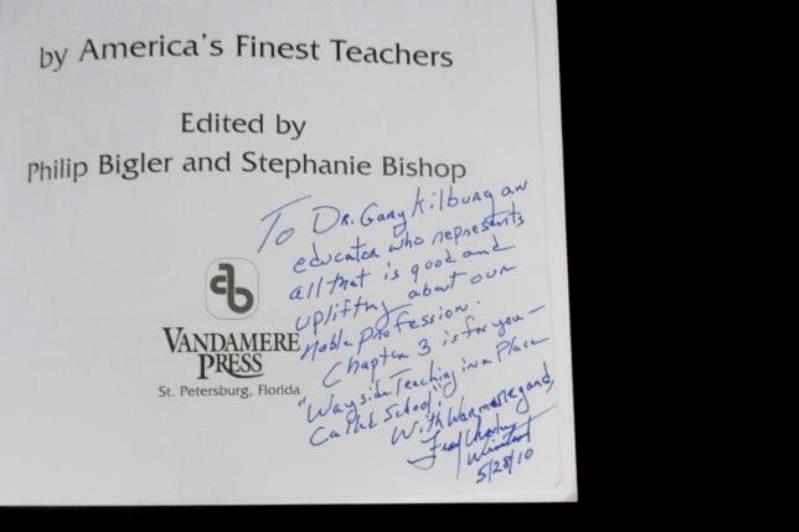 by America's Finest Teachers
Edited by
Philip Bigler and Stephanie Bishop
To Dr. Gary Kilburg an
educator who represents
all that is good and
uplifting about our
noble profession.
Chapter 3 is for you –
"Wayside Teaching in a Place
Called School".
With Warmest regard,
5/28/10
ab
VANDAMERE
PRESS
St. Petersburg, Florida